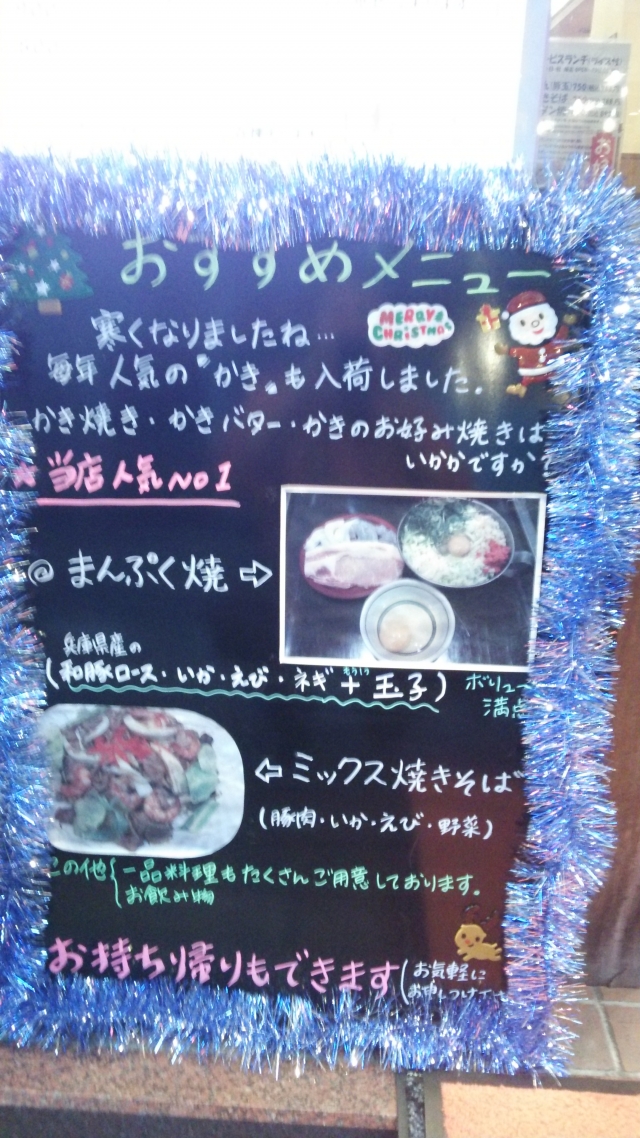 おすすめメニュー
MERRY CHRISTMAS
寒くなりましたね…
毎年人気の"かき"も入荷しました。
かき焼き・かきバター・かきのお好み焼きは
いかがですか?
★当店人気NO1
@ まんぷく焼 ⇨
兵庫県産の
(和豚ロース・いか・えび・ネギ + 玉子)
ボリュー
満点
⇦ ミックス焼きそば
(豚肉・いか・えび・野菜)
この他{一品料理もたくさんご用意しております。
お飲み物
お持ち帰りもできます(お気軽に
お申しつけ下